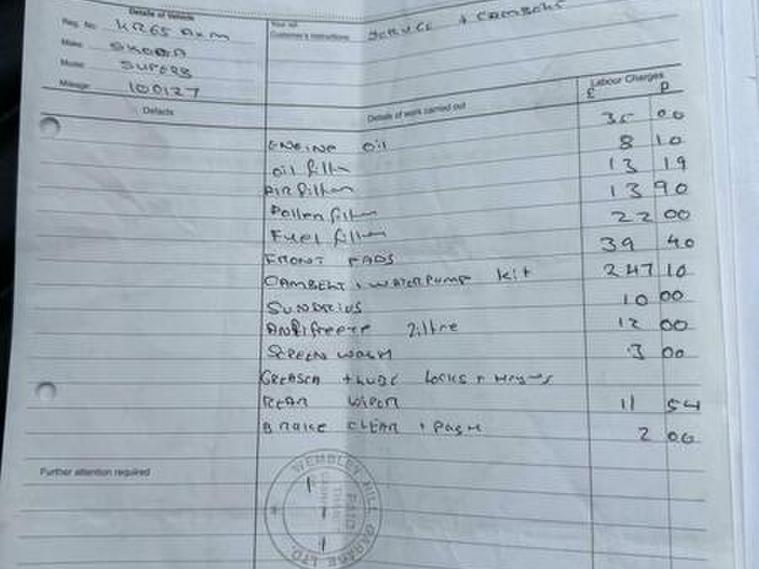 Details of Vehicle
Reg. No. KR65
Make: SKODA
Model: SUPERB
Mileage: 100127
Your ref.
Customer's instructions: SERVICE + CAMBELT
Labour Charges
£ p
Defects
Details of work carried out
ENGINE OIL 35 00
oil filter 8 10
Air filter 13 19
Pollen filter 13 90
Fuel filter 22 00
FRONT PADS 39 40
CAMBELT + WATER PUMP Kit 247 10
SUNDRIES 10 00
Antifreeze 2 litre 12 00
SCREEN WASH 3 00
GREASED + LUBE LOCKS +
REAR WIPER 11 54
BRAKE CLEAN + 2 00
Further attention required
WEMBLEY HILL GARAGE LTD
PAID